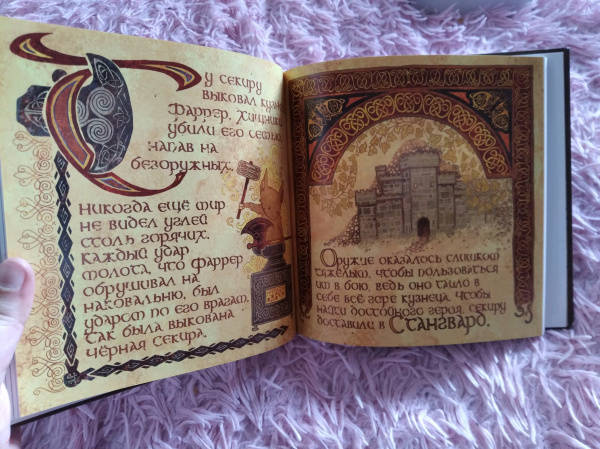 Ту секиру
выковал кузнец
Фаррер. Хищники
убили его семью,
напав на
безоружных.
Никогда ещё мир
не видел углей
столь горячих.
Каждый удар
молота, что Фаррер
обрушивал на
наковальню, был
ударом по его врагам.
Так была выкована
чёрная секира.
Оружие оказалось слишком
тяжёлым, чтобы пользоваться
им в бою, ведь оно таило в
себе всё горе кузнеца. Чтобы
найти достойного героя, секиру
доставили в Стангвард.